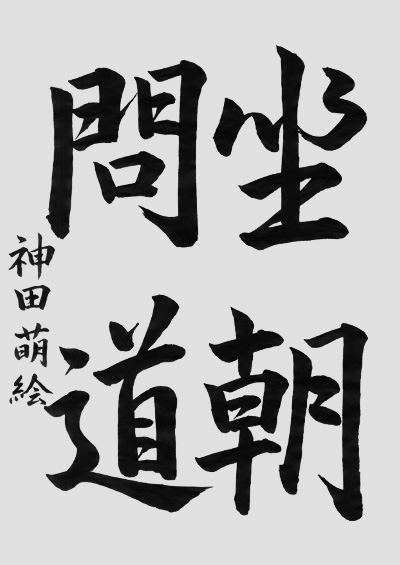 坐朝
問道
神田萌絵